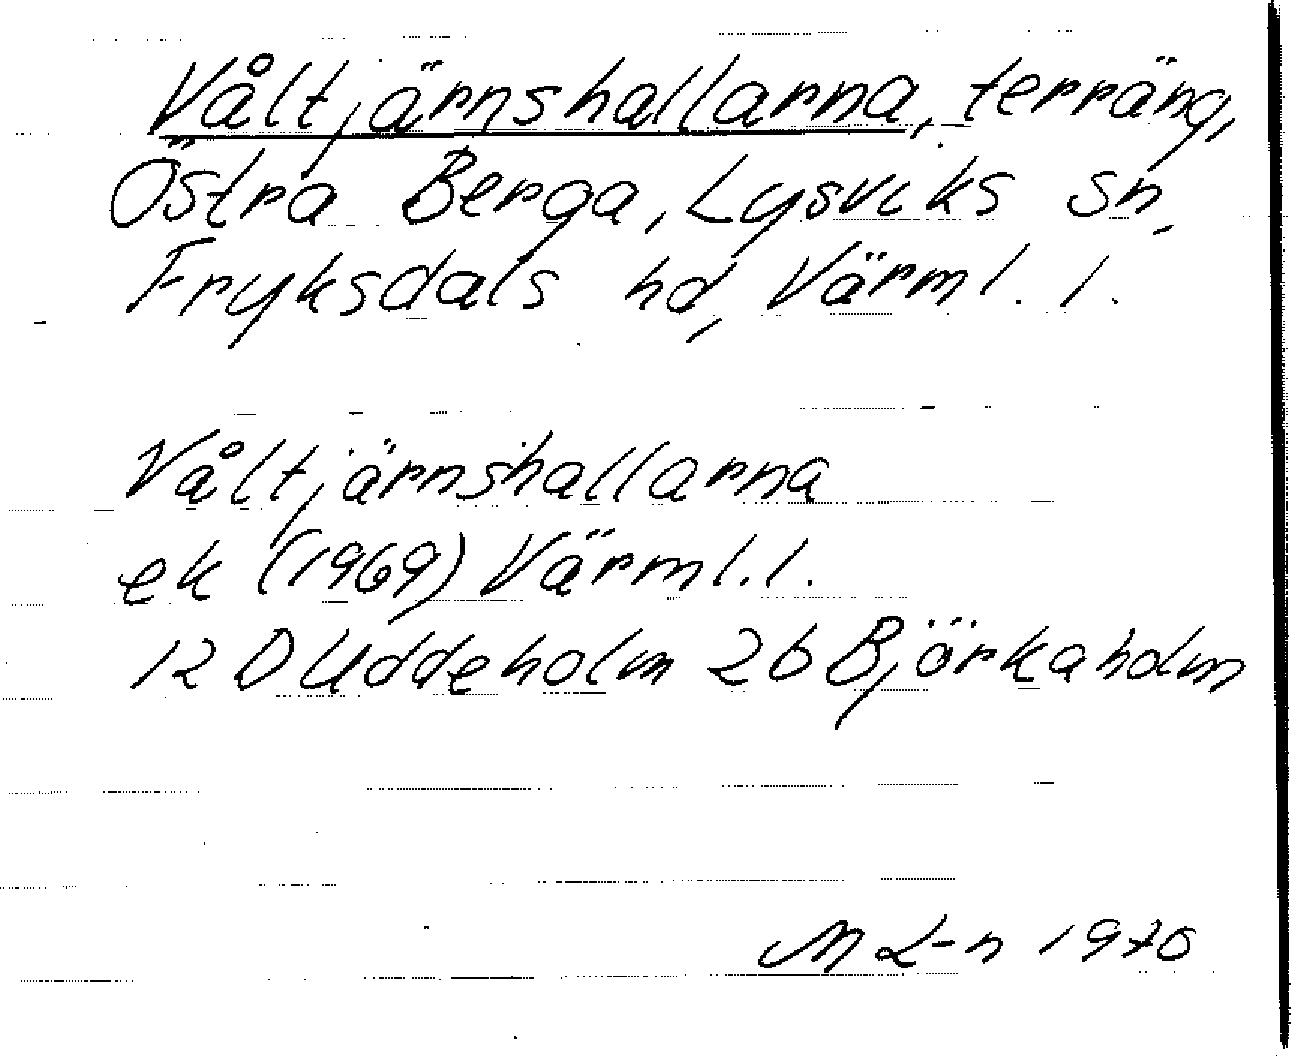 Våltjärnshallarna, terräng,
Östra Berga, Lysviks sn,
Fryksdals hd, Värml. l.
Våltjärnshallarna
ek (1969) Värml. l.
12 D Uddeholm 2b Björkaholm
M L-n 1970